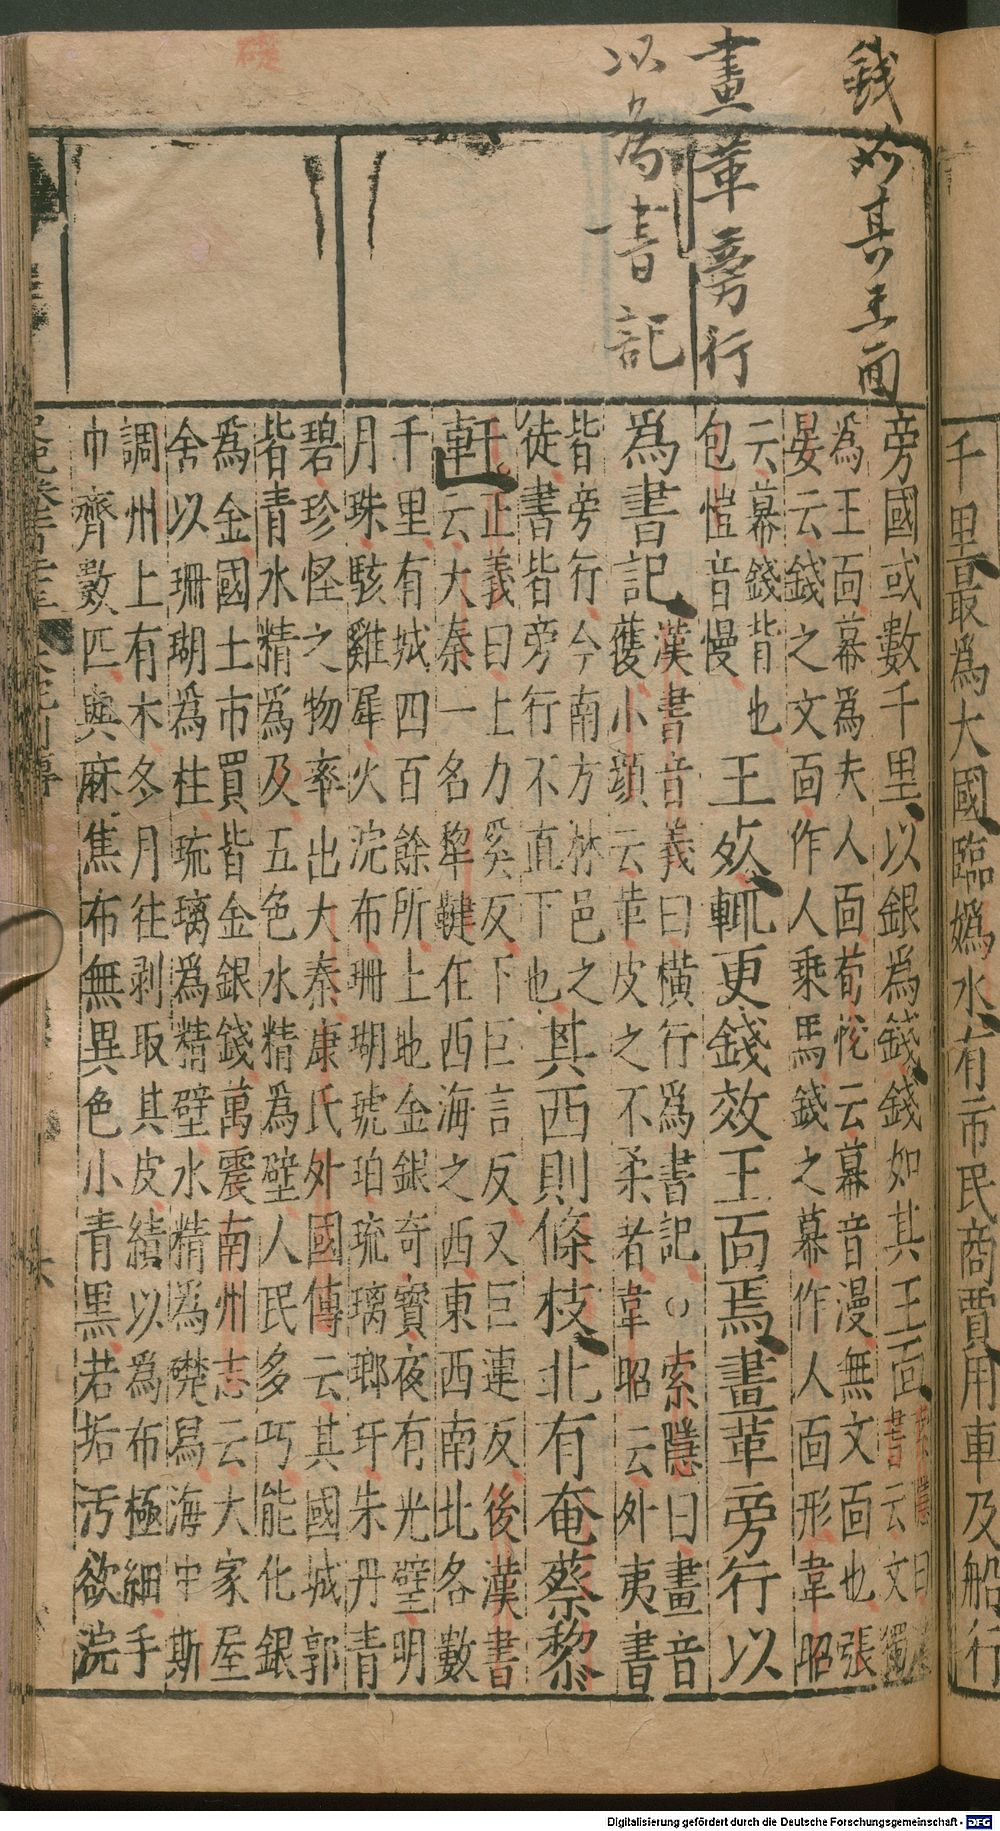 礎
錢如其王面
畫革旁行
以為書記
千里最爲大國臨媯水有市民商賈用車及船行
旁國或數千里以銀爲錢錢如其王面索隱曰漢
書云文獨
爲王面幕爲夫人面荀悅云幕音漫無文面也張
晏云錢之文面作人乗馬錢之幕作人面形韋昭
云幕錢背也
包愷音慢
王死輒更錢效王面焉畫革旁行以
爲書記
漢書音義曰橫行爲書記〇索隱曰畫音
獲小顔云革皮之不柔者韋昭云外夷書
皆旁行今南方林邑之
徒書皆旁行不直下也
其西則條枝北有奄蔡黎
軒
正義曰上力奚反下巨言反又巨連反後漢書
云大秦一名犂鞬在西海之西東西南北各數
千里有城四百餘所土地金銀奇寳夜有光璧明
月珠駭雞犀火浣布珊瑚琥珀琉璃瑯玕朱丹青
碧珍怪之物率出大秦康氏外國傳云其國城郭
皆青水精爲及五色水精爲壁人民多巧能化銀
爲金國土市買皆金銀錢萬震南州志云大家屋
舍以珊瑚爲柱琉璃爲精壁水精爲礎舄海中斯
調州上有木冬月往剥取其皮績以爲布極細手
巾齊數匹與麻焦布無異色小青黑若垢汚欲浣
Digitalisierung gefördert durch die Deutsche Forschungsgemeinschaft - DFG